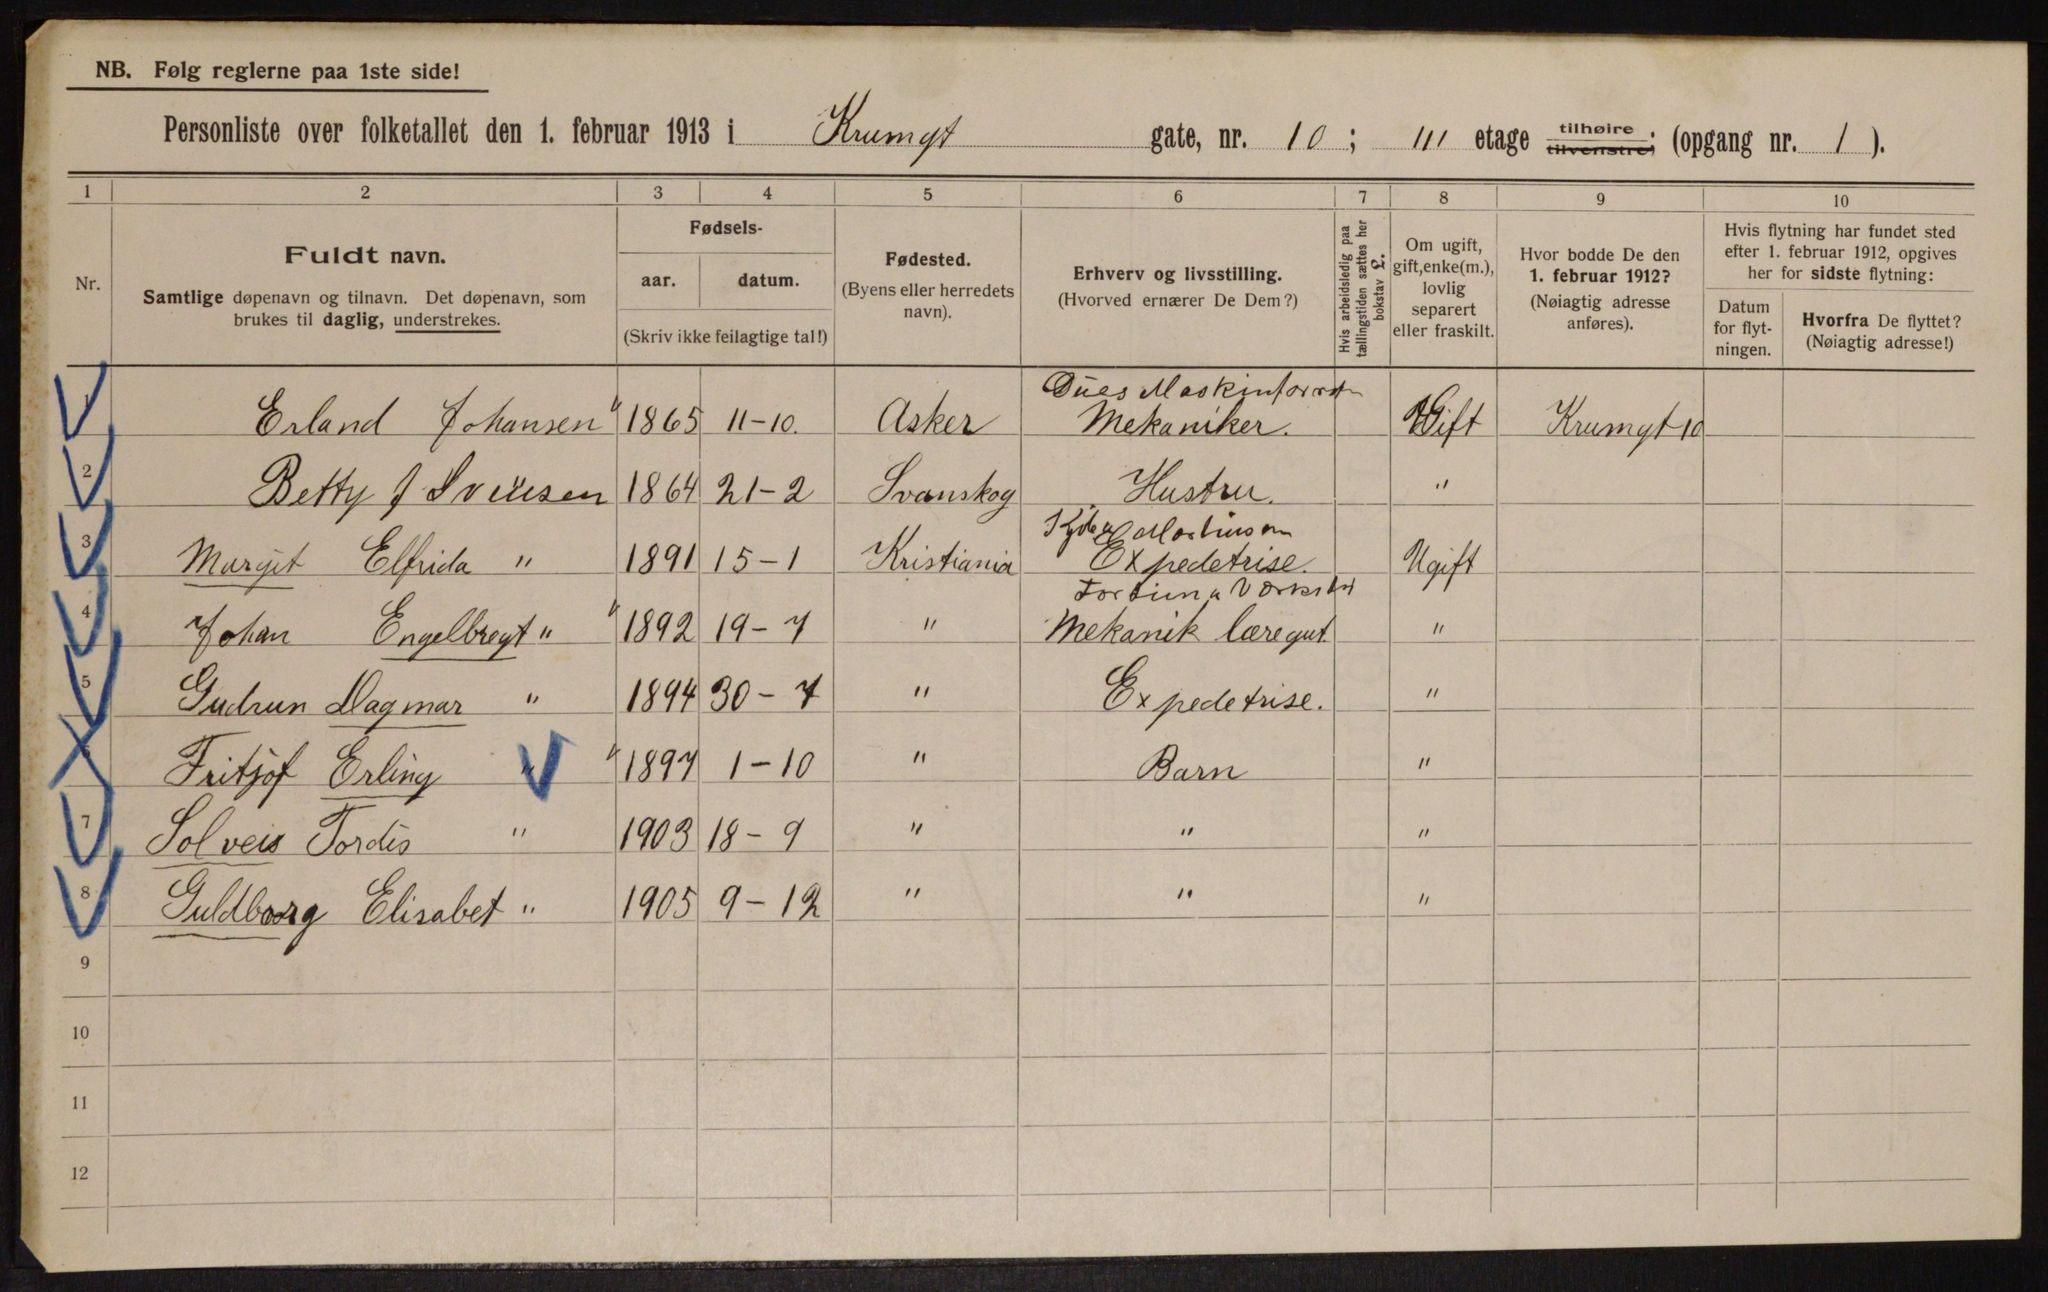 NB. Følg reglerne paa 1ste side!
Personliste over folketallet den 1. februar 1913 i Krumgt gate, nr. 10; III etage tilhøire tilvenstre; (opgang nr. 1).
1 2 3 4 5 6 7 8 9 10
Nr.
Fuldt navn.
Samtlige døpenavn og tilnavn. Det døpenavn, som
brukes til daglig, understrekes.
Fødsels-
aar. datum.
(Skriv ikke feilagtige tal!)
Fødested.
(Byens eller herredets
navn).
Erhverv og livsstilling.
(Hvorved ernærer De Dem?)
Hvis arbeidsledig paa
tællingstiden sættes her
bokstav £.
Om ugift,
gift, enke(m.),
lovlig
separert
eller fraskilt.
Hvor bodde De den
1. februar 1912?
(Nøiagtig adresse
anføres).
Hvis flytning har fundet sted
efter 1. februar 1912, opgives
her for sidste flytning:
Datum
for flyt-
ningen.
Hvorfra De flyttet?
(Nøiagtig adresse!)
Maskinforretn
1 Erland Johansen 1865 11-10. Asker Mekaniker. Gift Krumgt 10
2 Betty J 1864 21-2 Svanskog Hustru. "
3 Margit Elfrida " 1891 15-1 Kristiania Expedetrise. Ugift
Fortuna Værksted
4 Johan Engelbregt " 1892 19-7 " Mekanik læregut "
5 Gudrun Dagmar " 1894 30-7 " Expedetrise. "
6 Fritjof Erling " 1897 1-10 " Barn "
7 Solveis Tordis " 1903 18-9 " " "
8 Guldborg Elisabet " 1905 9-12 " " "
9
10
11
12